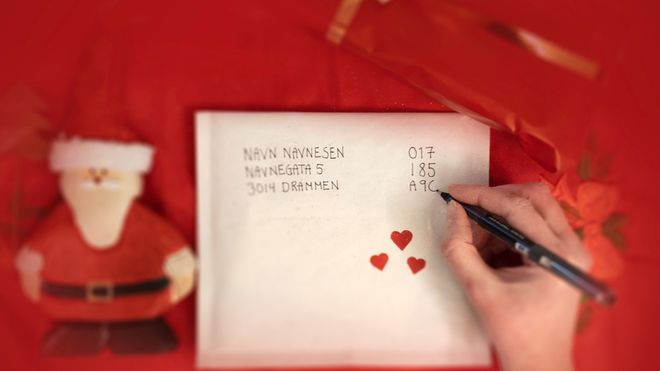 NAVN NAVNESEN 017
NAVNEGATA 5 185
3014 DRAMMEN A9C